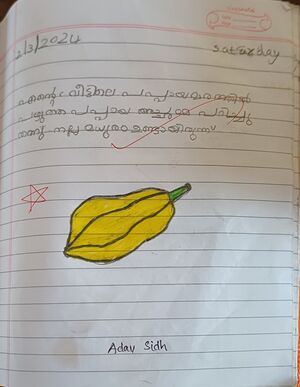 2/3/2024
saturday
എൻ്റെ വീട്ടിലെ പപ്പായമരത്തിൽ
പഴുത്ത പപ്പായ അച്ഛമ്മ പറിച്ചു
തന്നു നല്ല മധുരം ഉണ്ടായിരുന്ന്
Adav Sidh